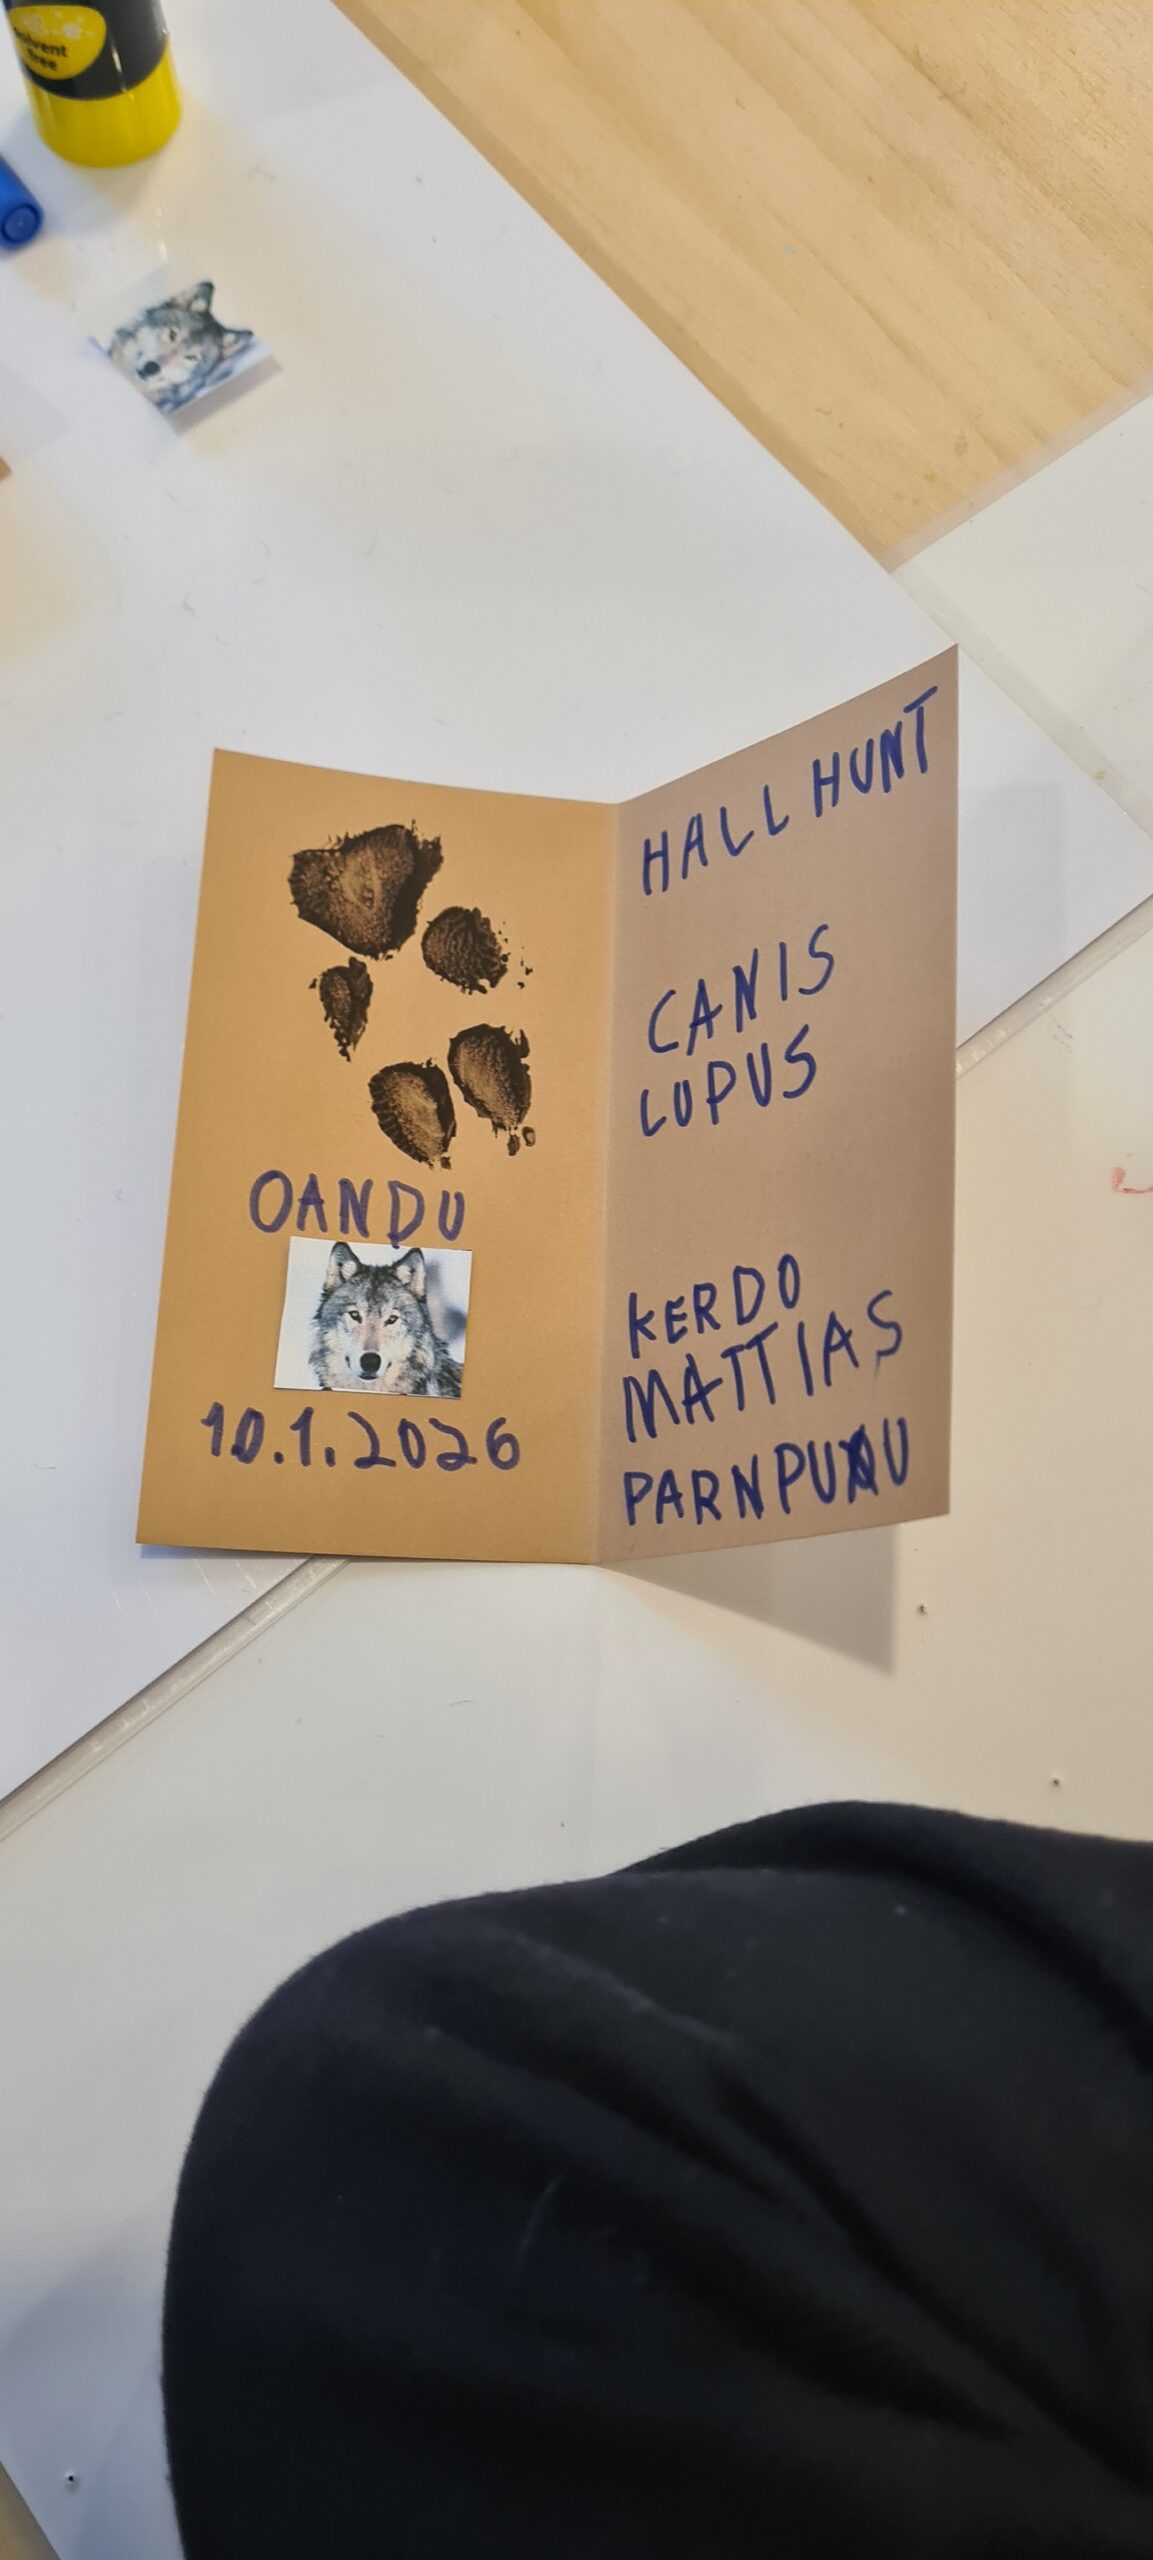 solvent
free
OANDU
10.1.2026
HALL HUNT
CANIS
LUPUS
KERDO
MATTIAS
PARNPUU